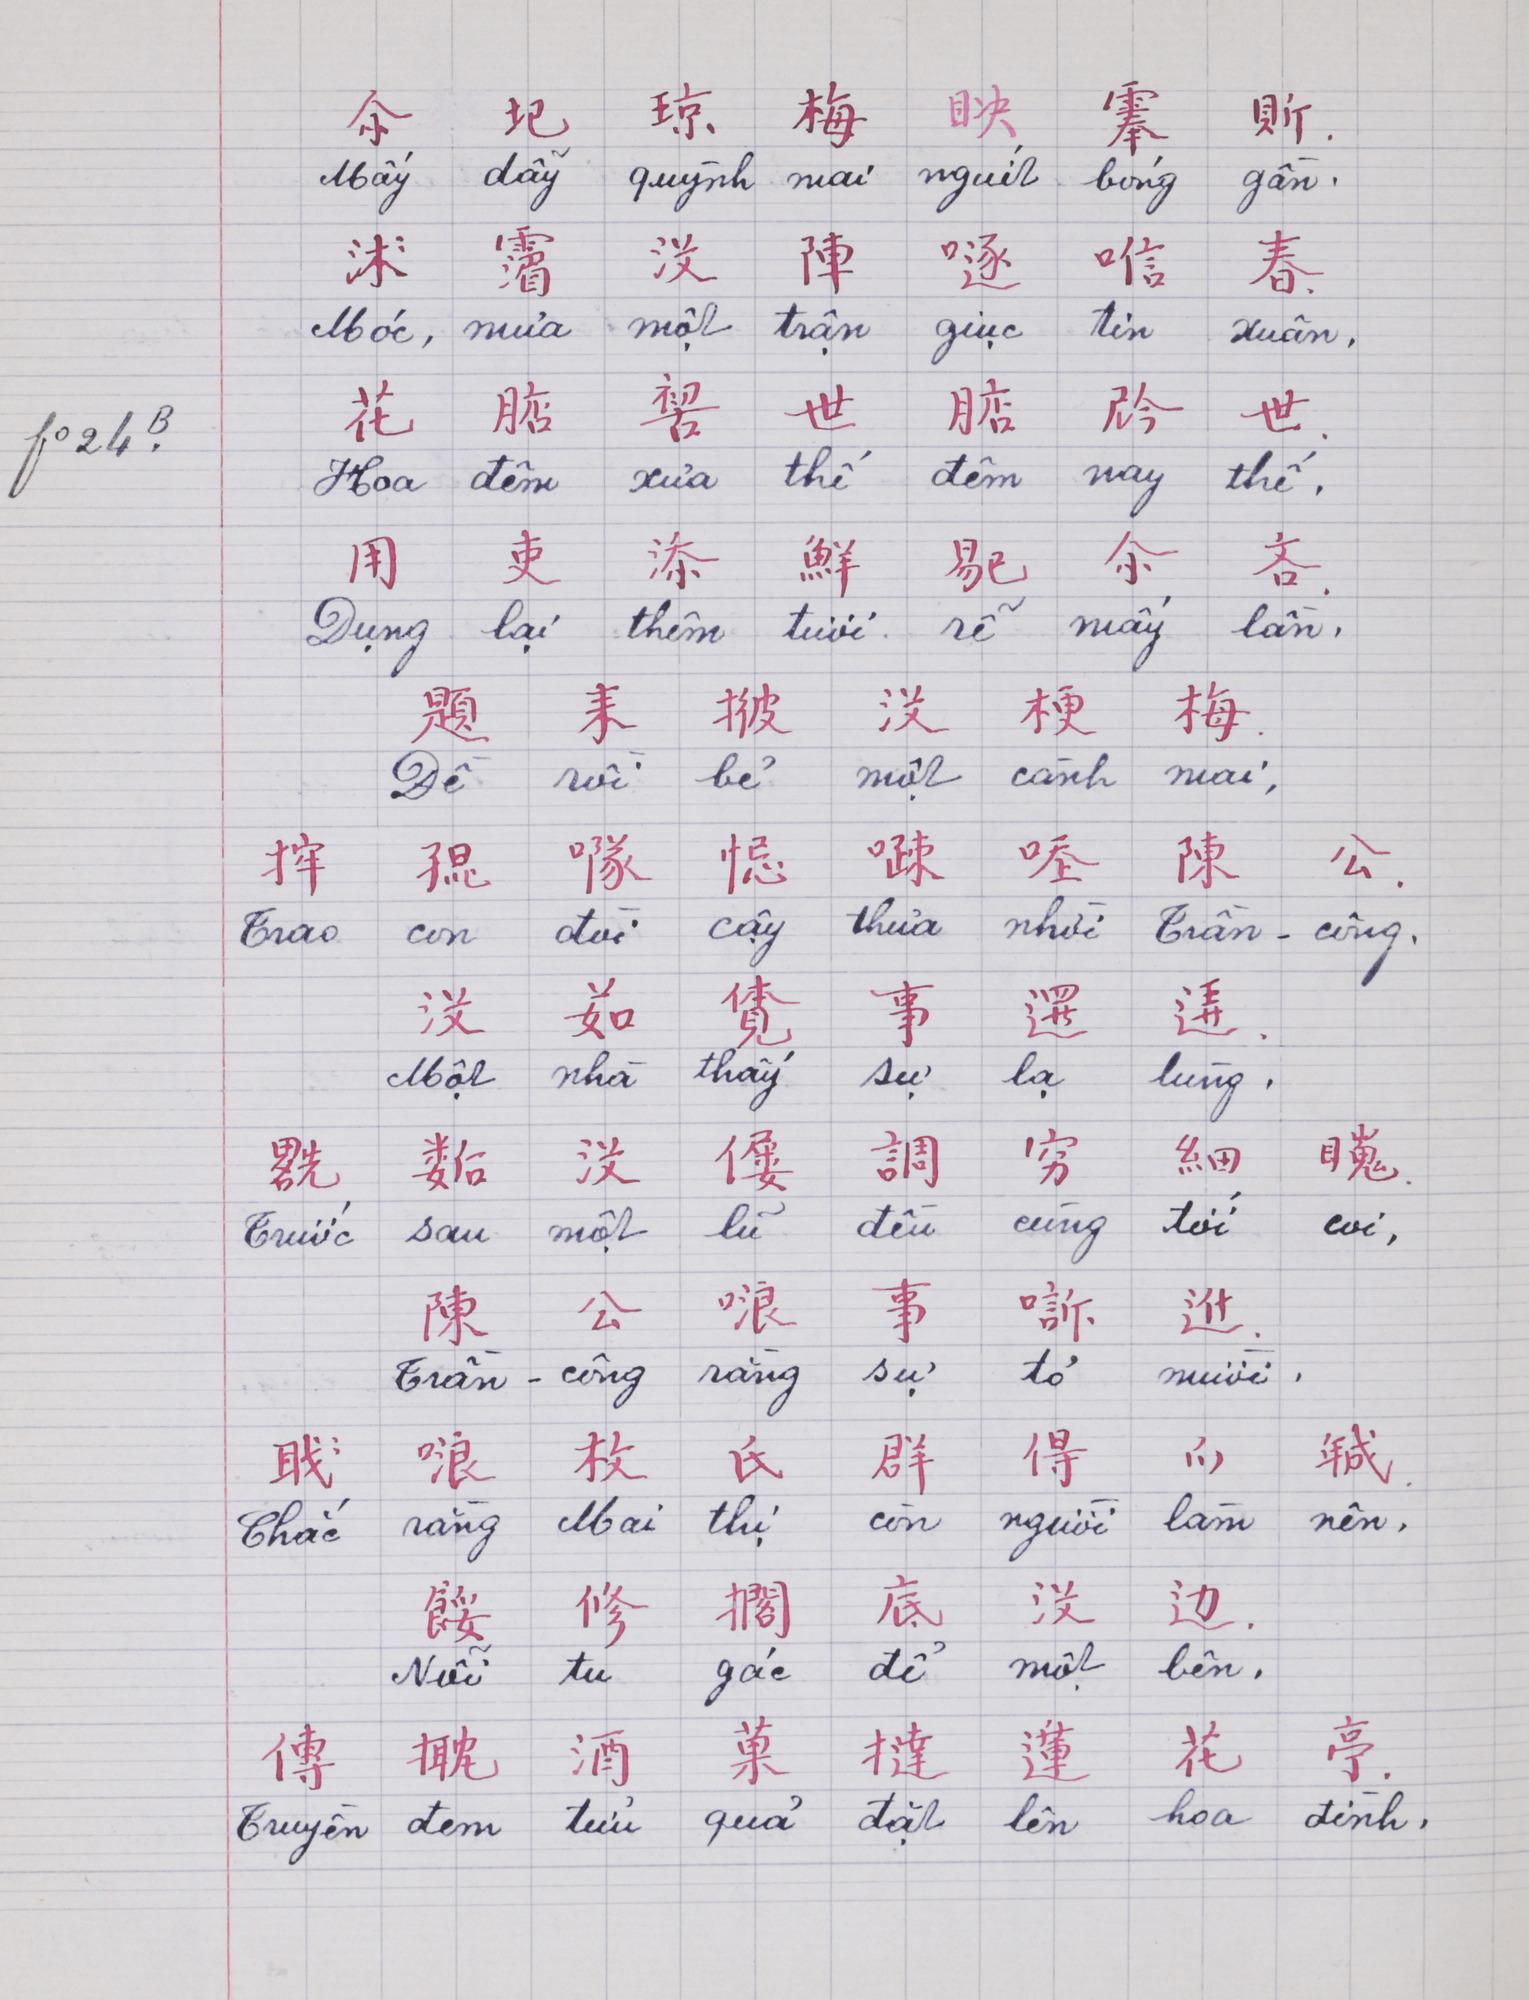 尒 圯 琼 梅 映 䨜 斯.
Mấy dẫy quỳnh mai nguýt bóng gần.
沭 𩆍 没 陣 𠽖 信 春.
Móc, mưa một trận giục tin xuân.
花 𣎀 𠸗 世 𣎀 𫢩 世.
fº 24 B.
Hoa đêm xưa thế đêm nay thế,
用 吏 添 鮮 易 尒 吝.
Dụng lại thêm tươi rễ mấy lần.
題 耒 𢱎 没 梗 梅.
Đề rồi bẻ một cành mai,
捽 𡥵 㗂 𢚁 疎 𠳨 陳 公.
Trao con đòi cậy thưa nhời Trần - công.
没 茹 𧡊 事 邏 逄.
Một nhà thấy sự lạ lùng,
𠓀 𡢐 没 𠎪 調 穷 細 𥋳.
Trước sau một lũ đều cùng tới coi,
陳 公 哴 事 訴 𨑮.
Trần - công rằng sự tỏ mười,
聀 哴 枚 氏 群 得 𫜵 𢧚.
Chắc rằng Mai thị còn người làm nên.
餒 修 擱 底 没 边.
Nỗi tu gác để một bên,
傳 抌 酒 菓 撻 蓮 花 亭.
Truyền đem tửu quả đặt lên hoa đình.